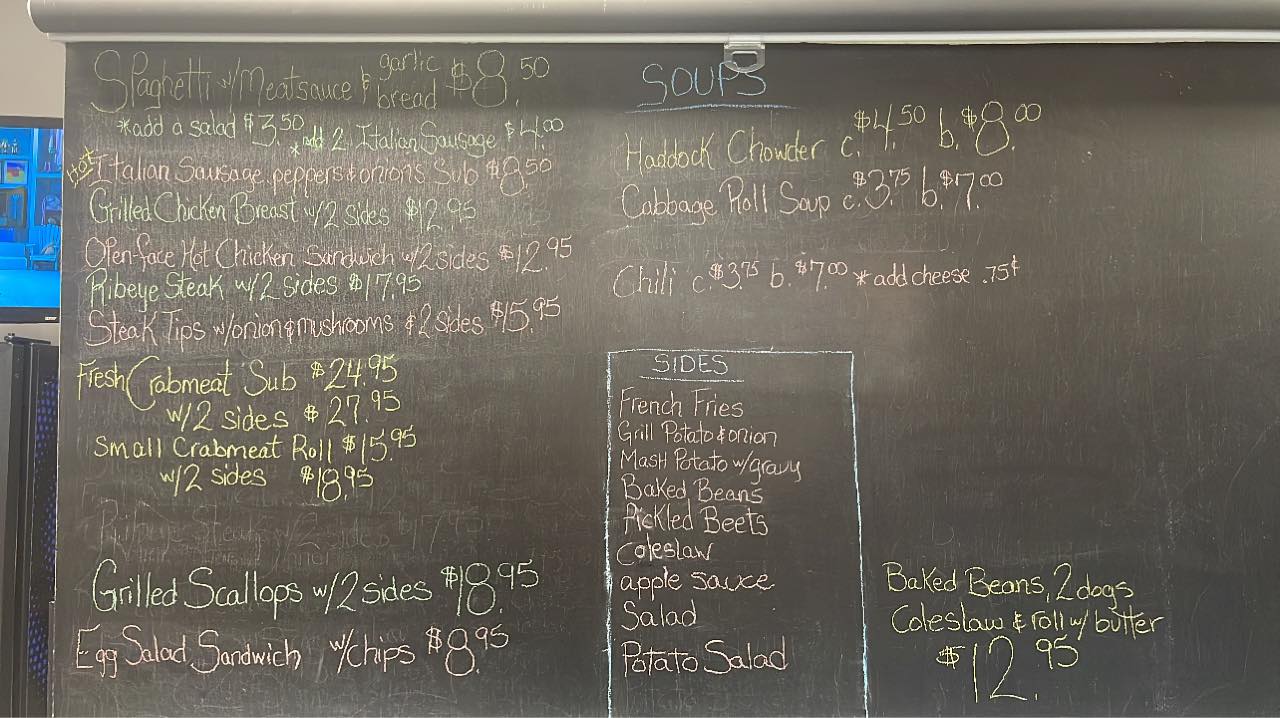 Spaghetti w/Meatsauce & garlic bread $8.50
*add a salad $3.50 *add 2 Italian Sausage $4.00
Hot Italian Sausage, peppers & onions Sub $8.50
Grilled Chicken Breast w/2 sides $12.95
Open-face Hot Chicken Sandwich w/2 sides $12.95
Ribeye Steak w/2 sides $17.95
Steak Tips w/onion & mushrooms & 2 sides $15.95
Fresh Crabmeat Sub $24.95
w/2 sides $27.95
Small Crabmeat Roll $15.95
w/2 sides $18.95
Ribeye Steak w/2 sides 17.95
Grilled Scallops w/2 sides $18.95
Egg Salad Sandwich w/chips $8.95
SOUPS
Haddock Chowder c. $4.50 b. $8.00
Cabbage Roll Soup c. $3.75 b. $7.00
Chili c. $3.75 b. $7.00 *add cheese .75¢
SIDES
French Fries
Grill Potato & onion
Mash Potato w/gravy
Baked Beans
Pickled Beets
Coleslaw
apple sauce
Salad
Potato Salad
Baked Beans, 2 dogs
Coleslaw & roll w/ butter
$12.95